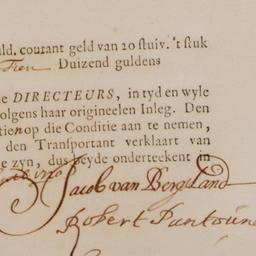 ald. courant geld van 20 stuiv. 't stuk
Tien Duizend guldens
ie DIRECTEURS, in tyd en wyle
olgens haar origineelen Inleg. Den
tien op die Conditie aan te nemen,
den Transportant verklaart van
e zyn, dus beyde onderteekent in
Jacob van Bergeland
Robert Puntoune